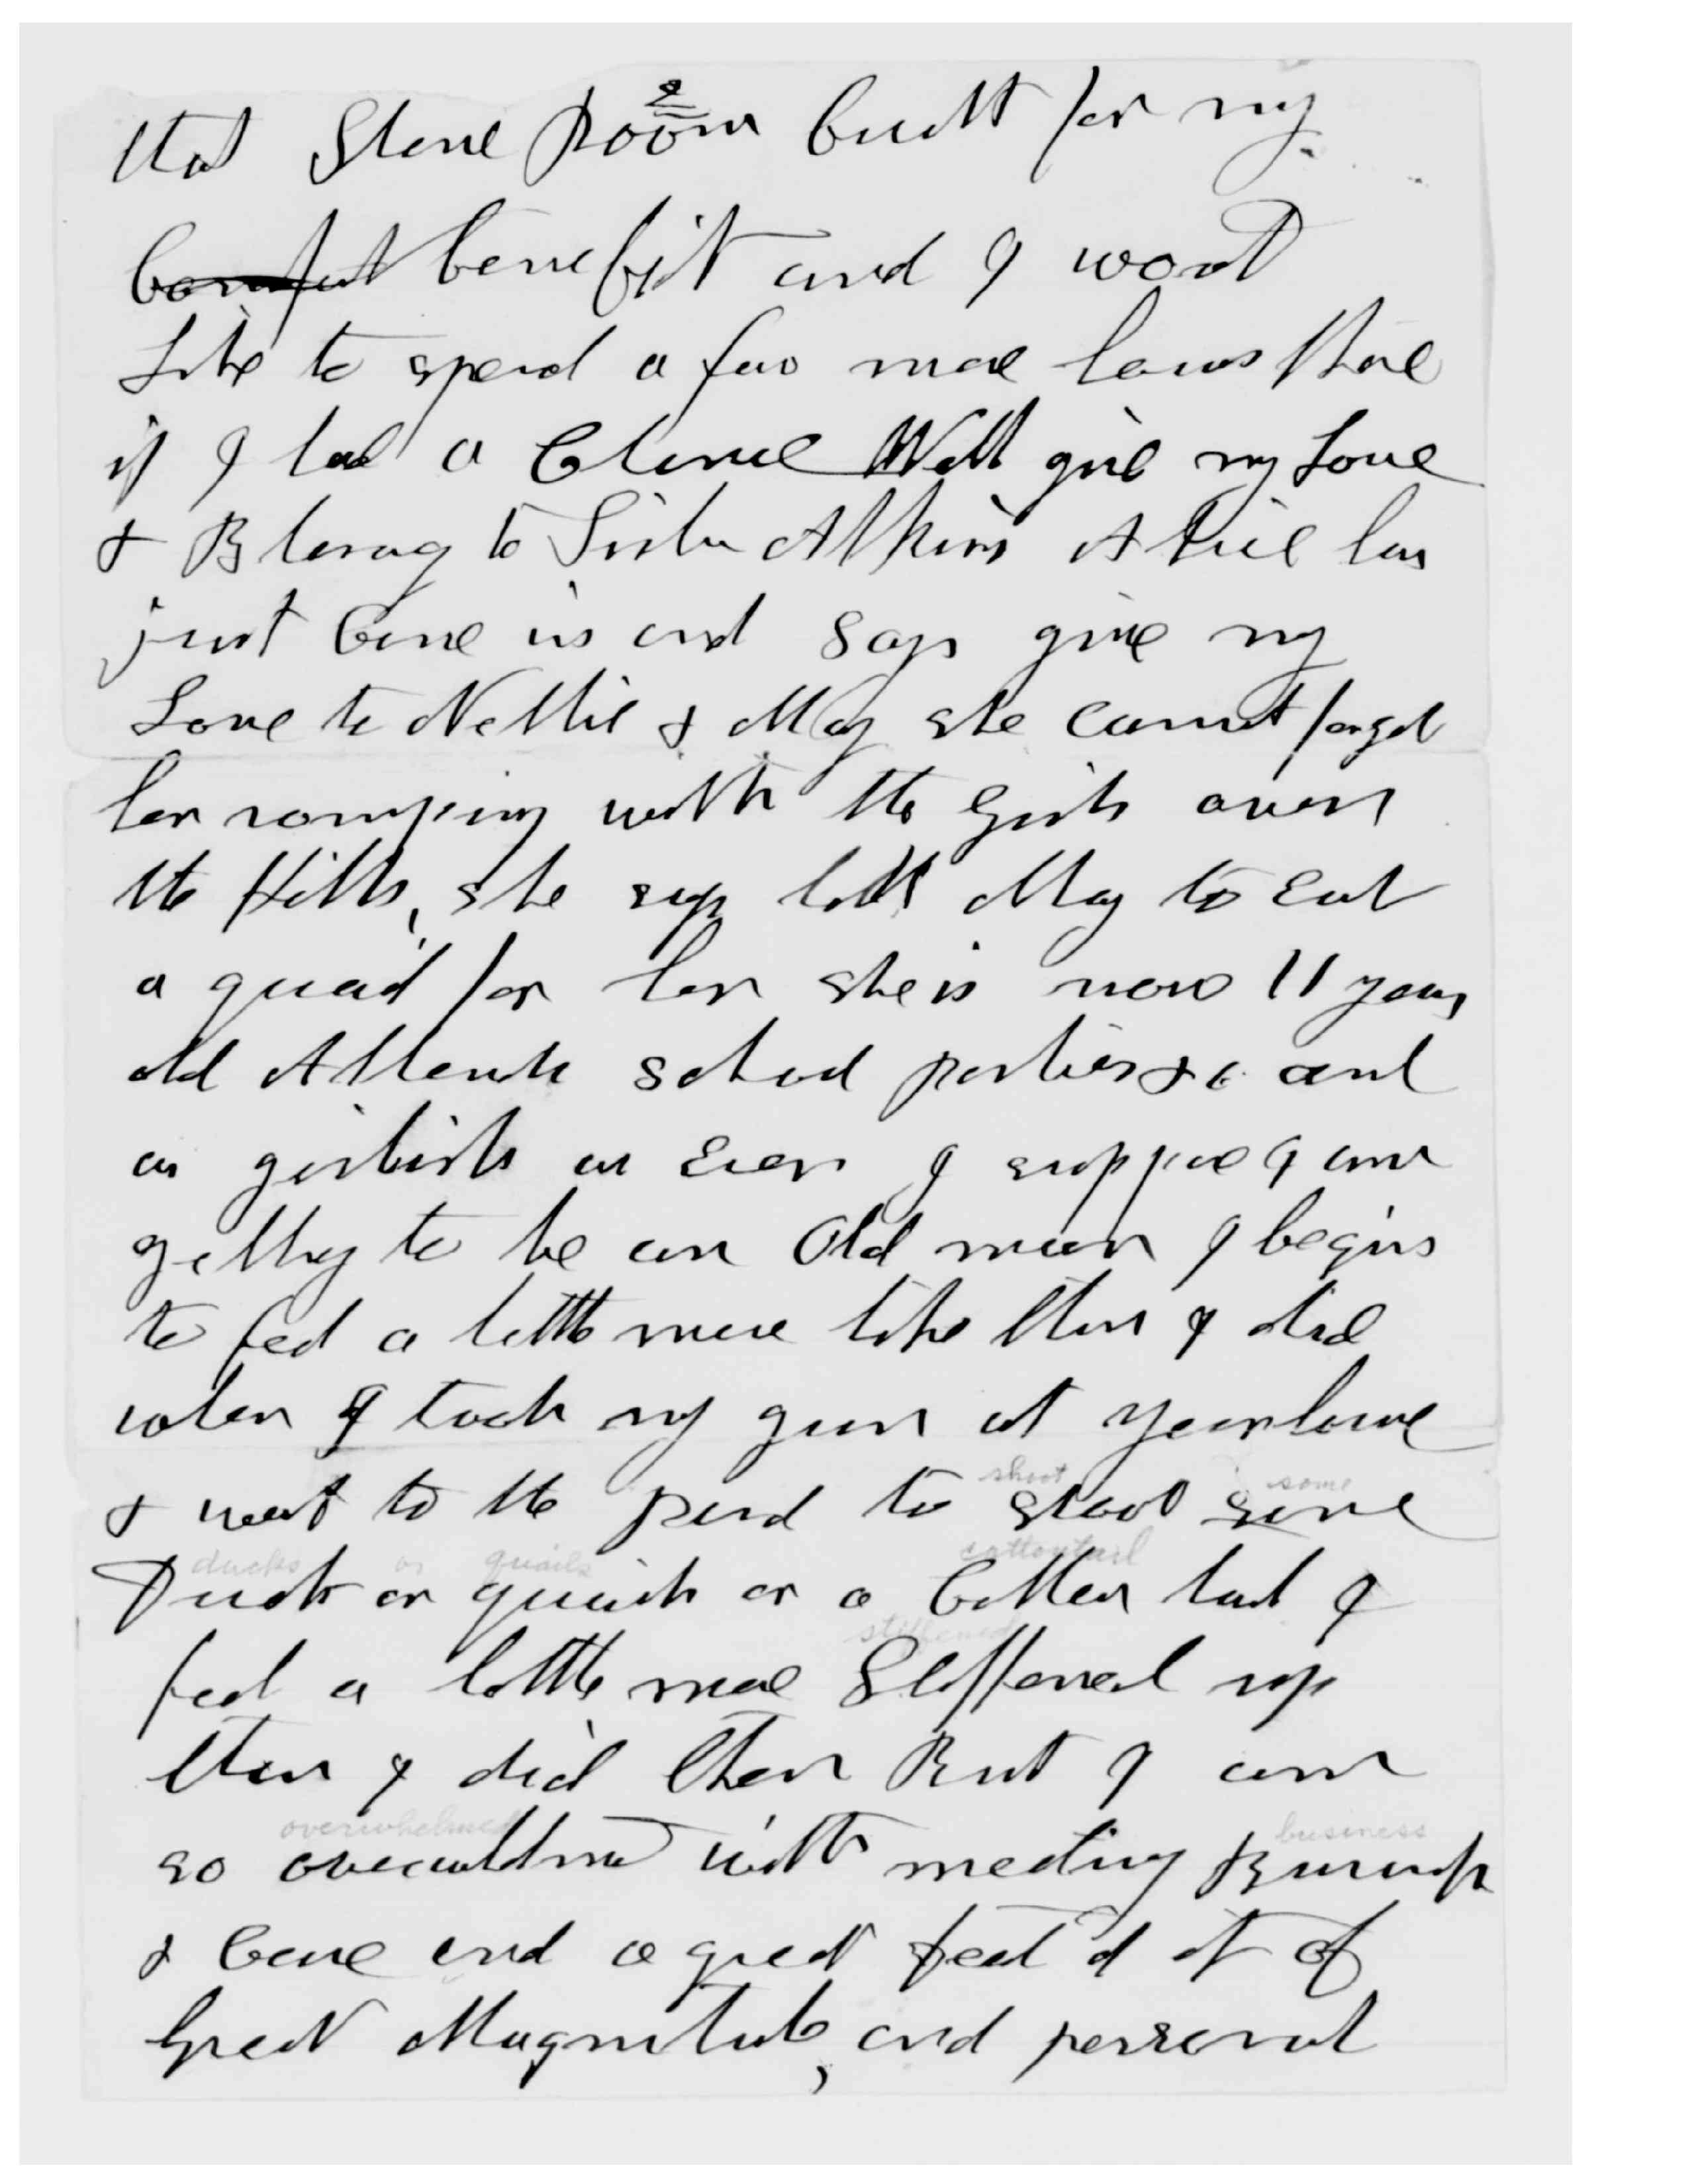 that Stone Room built for my
2
comfort benefit and I would
Like to spend a few more hours there
if I had a Chance Well give my Love
& Blessing to Sister Atkin Alice has
just Come in and says give my
Love to Nellie & May she cannot forget
her romping with the Girls over
the Hills, she says tell May to Eat
a quail for her she is now 11 years
old Attends school parties &c and
as girlish as Ever I suppose I am
getting to be an Old man I begin
to feel a little more like than I did
when I took my gun at your house
& went to the pond to shoot some
shoot some
Ducks or quails or a Cotton tail I
ducks or quails cottontail
feel a little more Stiffened up
stiffened
than I did then But I am
so overwhelmed with meeting Business
overwhelmed business
& Care and a great deal of it of
Great Magnitude, and personal